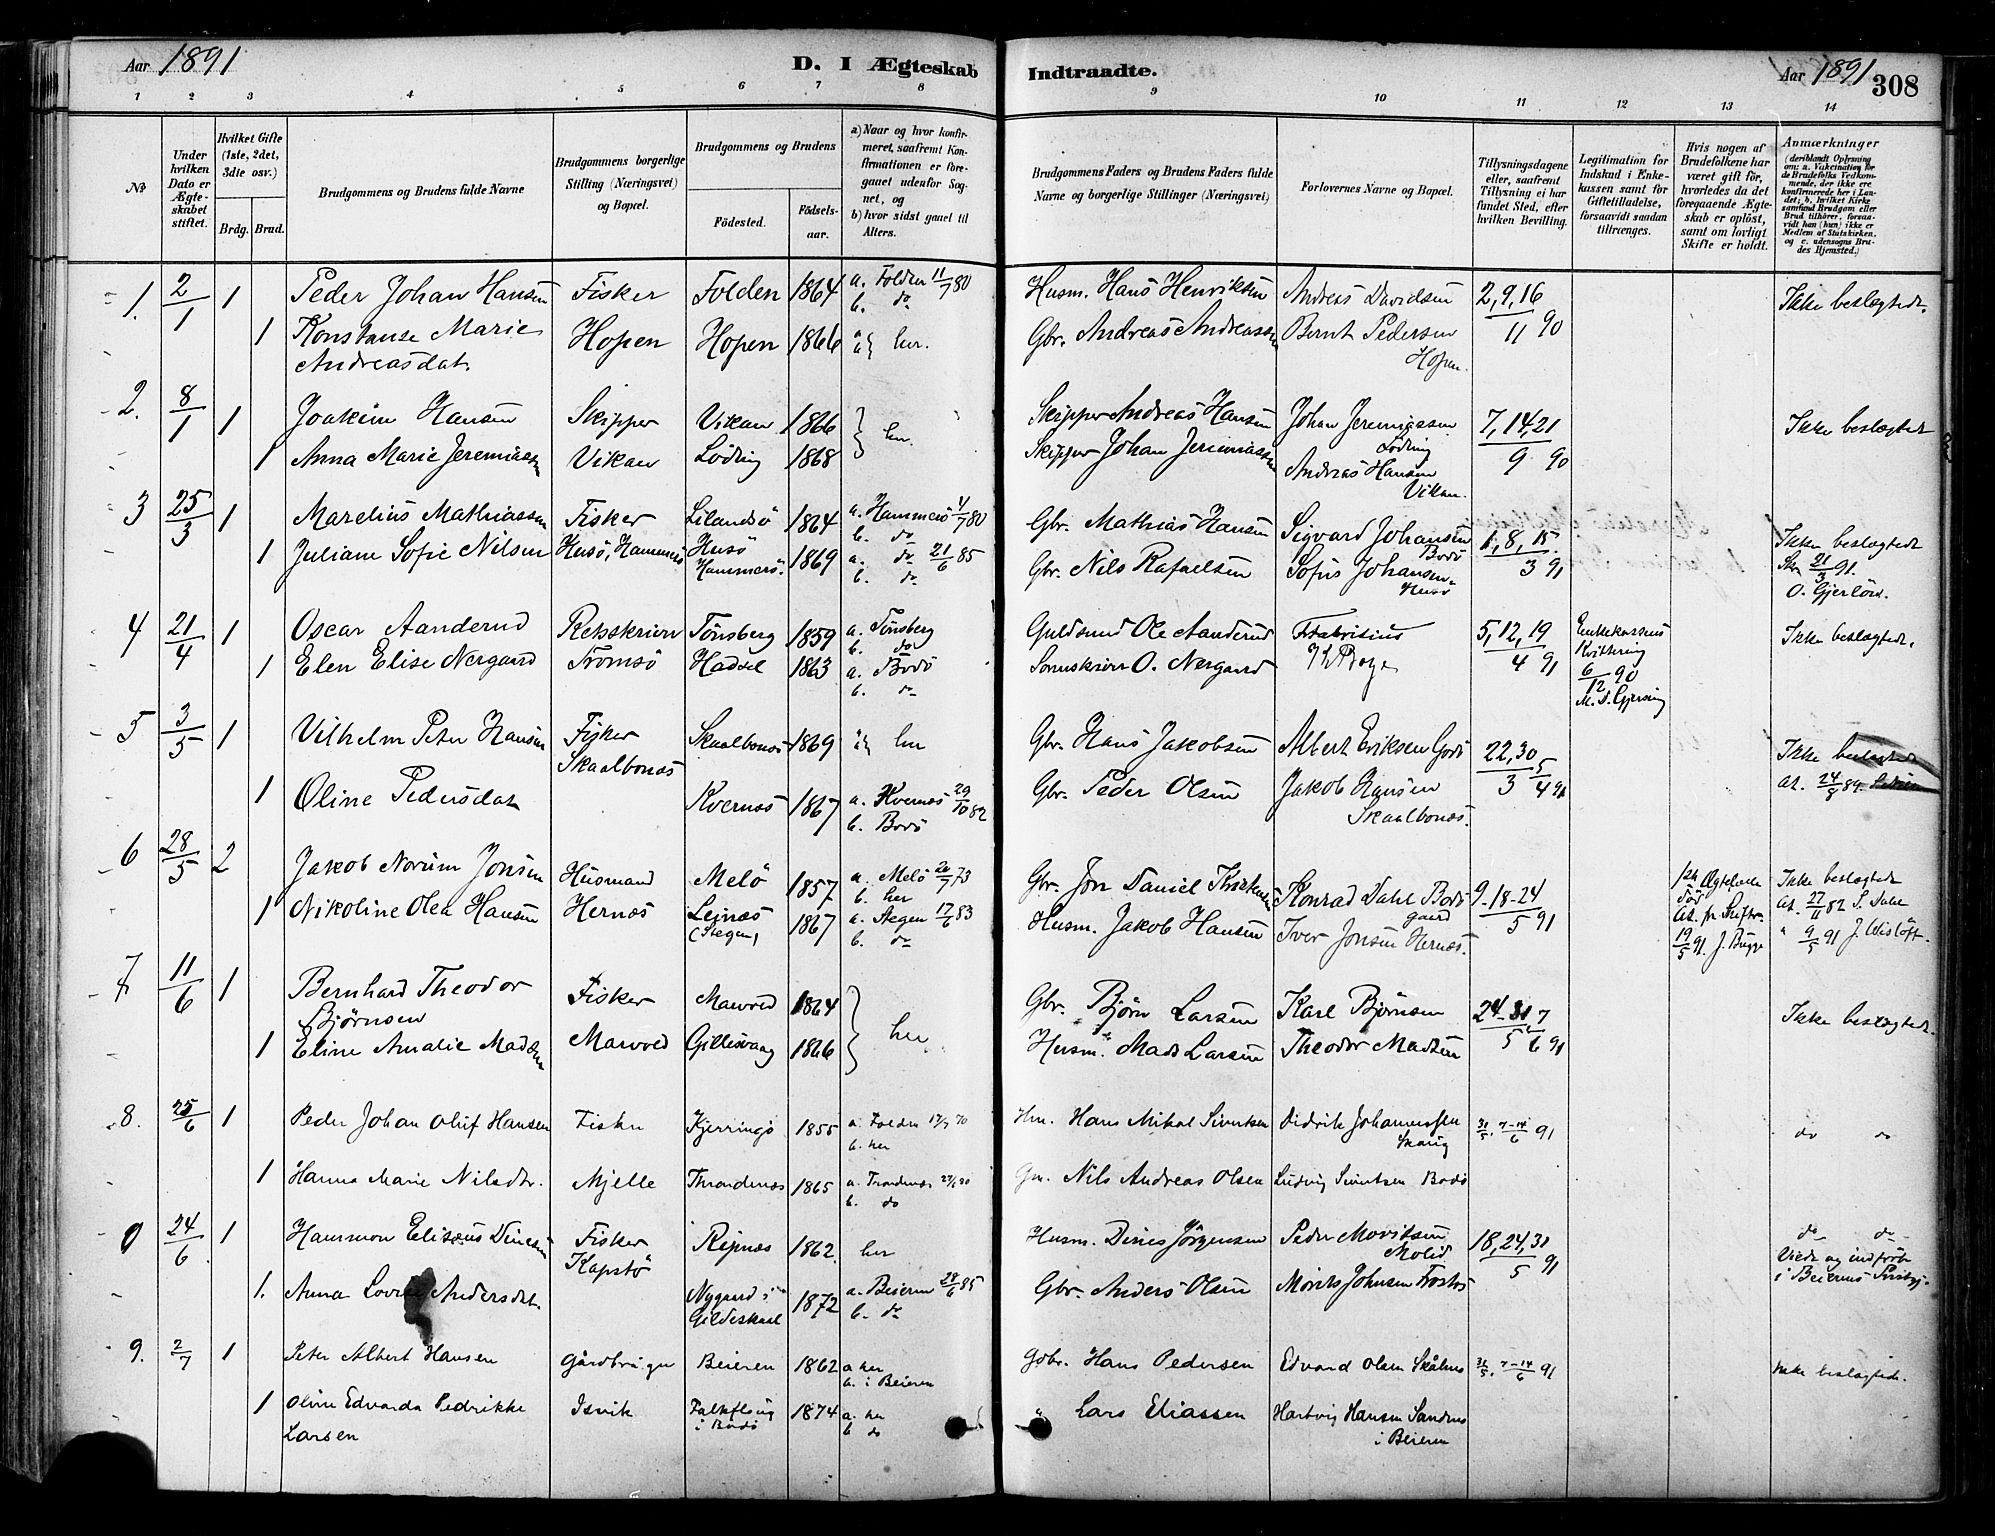 Aar 1891
D. I Ægteskab
Indtraadte.
Aar 1891
308
1 2 3 4 5 6 7 8 9 10 11 12 13 14
No
Under hvilken Dato er Ægteskabet stiftet.
Hvilket Gifte (1ste, 2det, 3die osv.)
Brdg. Brud.
Brudgommens og Brudens fulde Navne
Brudgommens borgerlige Stilling (Næringsvei) og Bopæl.
Brudgommens og Brudens
Födested.
Födselsaar.
a) Naar og hvor konfirmeret, saafremt Konfirmationen er foregaaet udenfor Sognet, og
b) hvor sidst gaaet til Alters.
Brudgommens Faders og Brudens Faders fulde Navne og borgerlige Stillinger (Næringsvei)
Forlovernes Navne og Bopæl.
Tillysningsdagene eller, saafremt Tillysning ei har fundet Sted, efter hvilken Bevilling.
Legitimation for Indskud i Enkekassen samt for Giftetilladelse, forsaavidt saadan tiltrænges.
Hvis nogen af Brudefolkene har været gift før, hvorledes da det foregaaende Ægteskab er oplöst, samt om lovligt Skifte er holdt.
Anmærkninger (deriblandt Oplysning om: a. Vaccination for de Brudefolks Vedkommende, der ikke ere konfirmerede her i Landet; b. hvilket Kirkesamfund Brudgom eller Brud tilhörer, forsaavidt han (hun) ikke er Medlem af Statskirken, og c. udensogns Brudes Hjemsted.)
1. 2/1 1 Peder Johan Hansen Fisker Folden 1864 a. Folden 11/7 80 b. do Husm. Hans Henriksen Andreas Davidsen 2, 9, 16 Ikke beslægtede.
1 Konstanse Marie Hopen Hopen 1866 her. Gbr. Andreas Andreassen Bernt Pedersen 11 90
Andreasdat. Hopen.
2. 8/1 1 Joakim Hansen Skipper Vikan 1866 her. Skipper Andreas Hansen Johan Jeremiassen 7, 14, 21 Ikke beslægtet
Löding
1 Anna Marie Jeremiassen Vikan Löding 1868 Skipper Johan Jeremiassen Andreas Hansen 9 90
Vikan.
3 25/3 1 Marelius Mathiassen Fisker Lilandsö 1864 a. Hammerö 4/7 80 b. do Gbr. Mathias Hansen Sigvard Johansen 1, 8, 15. Ikke beslægtede
Bodö
1 Juliane Sofie Nilsen Husö, Hammerö Husö Hammerö. 1869 a. do 21/6 85 b. do Gbr. Nils Rafaelsen Sofus Johansen 3 91 21/3 91.
Husö O. Gjerlöv.
4 21/4 1 Oscar Aanderud Retsskriver Tönsberg 1859 a. Tönsberg b. do Guldsmed Ole Aanderud Fabritius 5, 12, 19 Enkekassens Kvittering 6/12 90 Ikke beslægtede.
1 Elen Elise Nergaard Tromsö Hadsel 1863 a. Bodö b. do Sorenskriver O. Nergaard 4 91
5 3/5 1 Vilhelm Peter Hansen Fisker Skaalbonæs 1869 her Gbr. Hans Jakobsen Albert Eriksen Godö 22, 30 5 Ikke beslægtede
Skaalbonæs
1 Oline Pedersdat Kvernæs 1867 a. Kvernæs 29/10 82 b. Bodö Gbr. Peder Olsen Jakob Hansen 3 4 91 at. 24/8 89.
Skaalbonæs.
6 28/5 2 Jakob Norum Jonsen Husmand Melö 1857 a. Melö 20/7 73 b. her Gbr. Jon Daniel Konrad Dahl Bodö gaard 9-18-24 Ikke beslægtede
1 Nikoline Olea Hansen Hernæs Leinæs (Stegen) 1867 a. Stegen 17/6 83 b. do Husm. Jakob Hansen Iver Jonsen Hernæs. 5 91 19/5 91 J. Bugge at. 27/11 82 S. Dahl
" 9/5 91 J.
7 11/6 1 Bernhard Theodor Fisker Marvod 1864 her Gbr. Björn Larsen Karl Björnsen 24-31 7 Ikke beslægtede.
Björnsen
1 Eline Amalie Madsen Marvod Gillesvaag 1866 Husm. Mads Larsen Theodor Madsen 5 6 91
8. 25/6 1 Peder Johan Oluf Hansen Fisker Kjerringö 1855 a. Folden 17/7 70 b. her Hm. Hans Mikal Sivertsen Didrik Johannessen Skaug 31/5. 7-14/6 91 do do
1 Hanna Marie Nilsdtr. Mjelle Throndenæs 1865 a. Trondenæs b. do Gm. Nils Andreas Olsen Ludvig Sivertsen Bodö
9 24/6 1 Hammon Elisæus Dinesen Fisker Kapstö Ripnæs 1862. her Husm. Dines Jörgensen Peder Movitsen Molid 18, 24, 31 do do
Viede og indfört i Beierens
1. Anna Lovise Andersdat. Nygaard i Gildeskaal 1872 a. Beieren 28/6 85 b. do Gbr. Anders Olsen Morits Johnsen 5 91
9. 2/7 1 Peter Albert Hansen Gårdbruger Beieren 1862 a. her b. i Beieren Gdbr. Hans Pedersen Edvard Olsen 31/5. 7-14/6 91 Ikke beslægtede.
1 Oline Edvarda Fedrikke Isvik Falkflaug i Bodö 1874 a. her b. do " Lars Eliassen Hartvig Hansen Sandnes i Beieren
Larsen